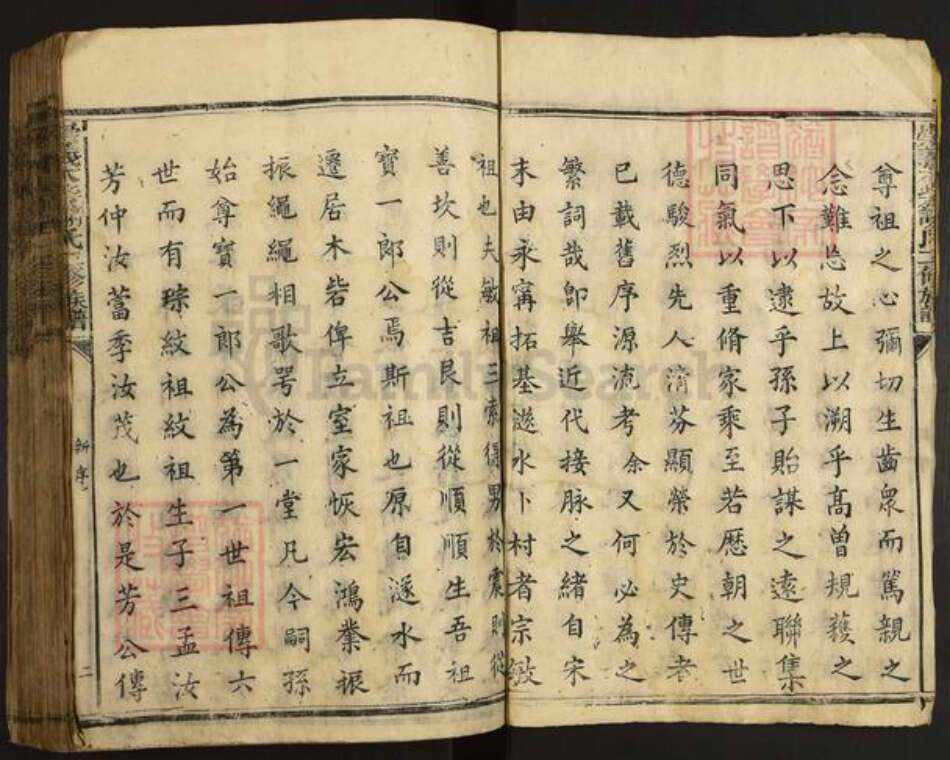 尊祖之心彌切生齒衆而篤親之
念難忘故上以溯乎高曾規蒦之
思下以逮乎孫子貽謀之遠聯集
同氣以重脩家乘至若歷朝之世
德駿烈先人清芬顯榮於史傳者
已載舊序源流考余又何必為之
繁詞哉卽舉近代接脉之緒自宋
末由永寧拓基遂水卜村者宗敏
祖也夫敏祖三索得男於震則從
善坎則從吉艮則從順順生吾祖
寶一郎公焉斯祖也原自遂水而
遷居木砦俾立室家恢宏鴻業振
振繩繩相歌咢於一堂凡今嗣孫
始尊寶一郎公為第一世祖傳六
世而有琮紋祖紋祖生子三孟汝
芳仲汝蓄季汝茂也於是芳公傳
新序
二
FamilySearch